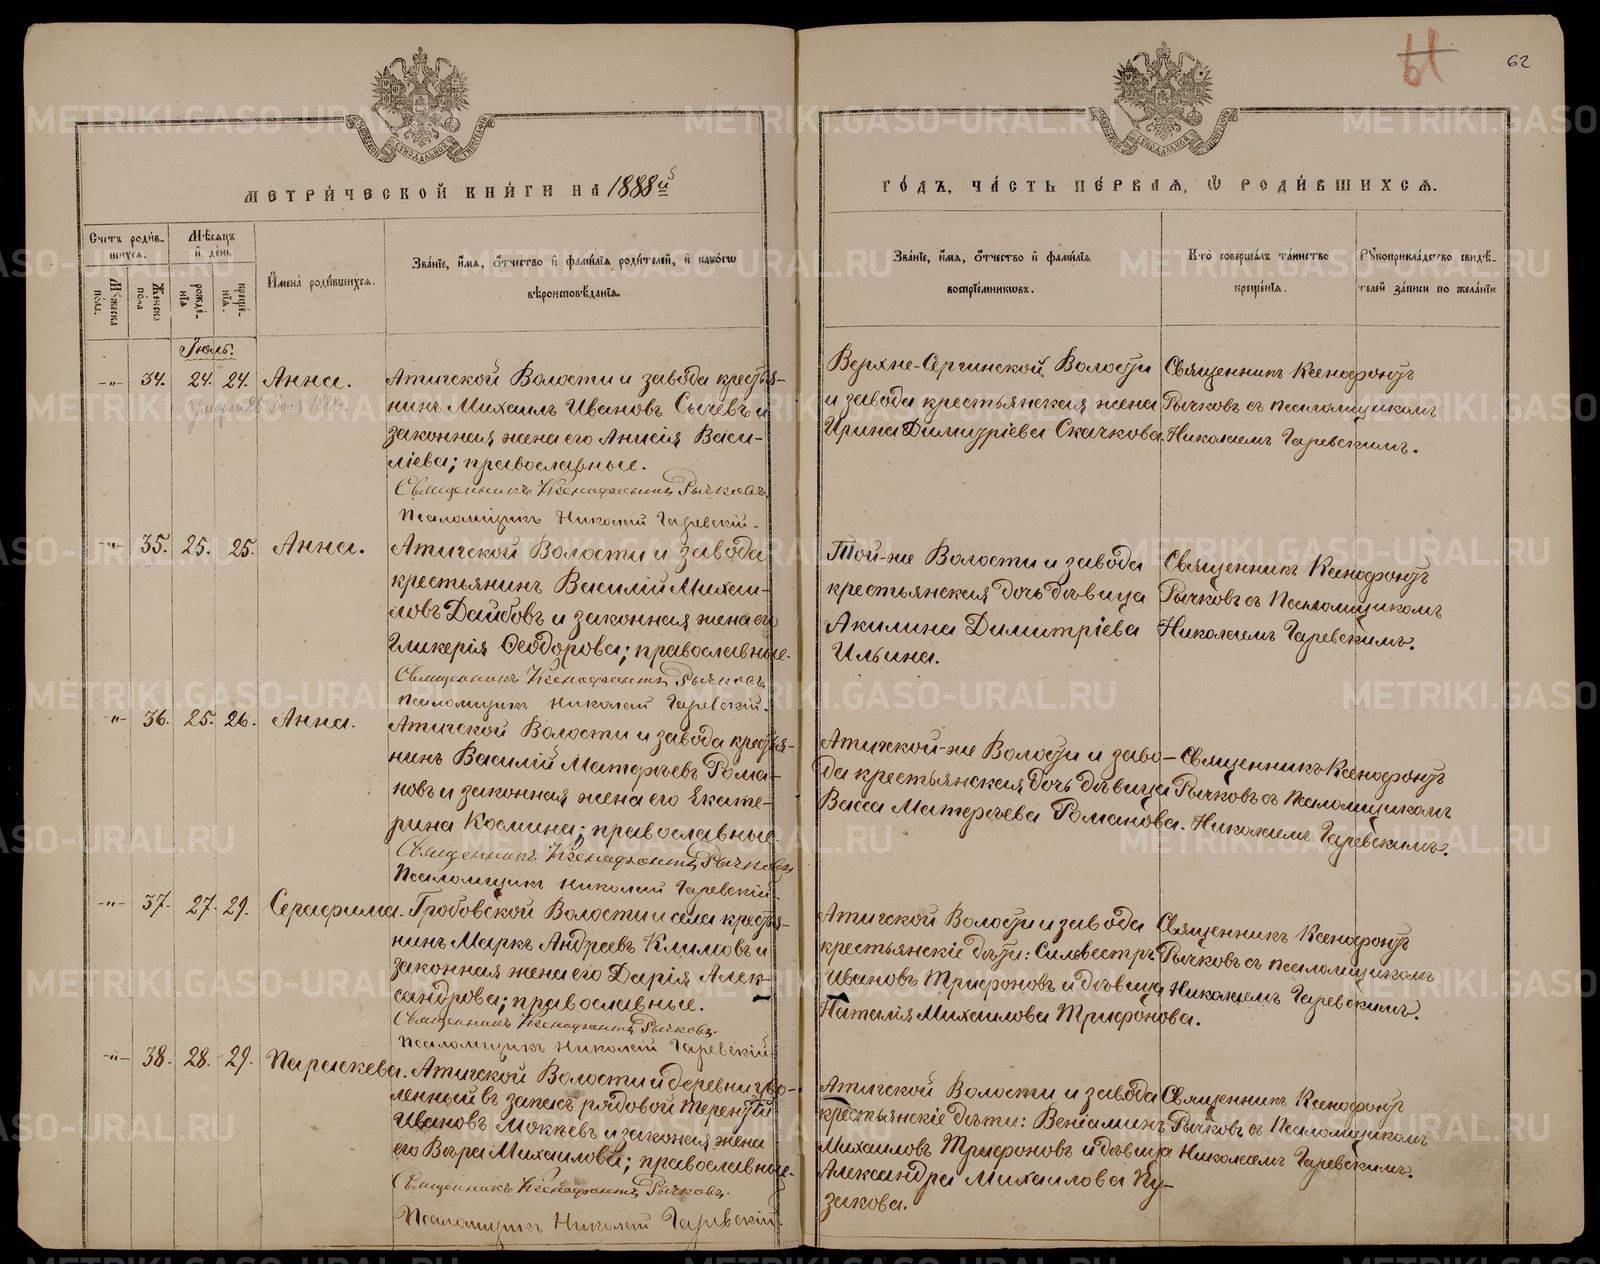 61
62
МЕТРИ́ЧЕСКОЙ КНИ́ГИ НА 1888й
ГО́ДЪ, ЧА́СТЬ ПЕ́РВАЯ, Ѽ РОДИ́ВШИХСЯ.
Счетъ роди́в-
шихся.
Мужеска по́ла.
Женска по́ла
Мѣсяцъ
и҆ де́нь
рожде́-
нїя
креще́-
нїя.
И҆мена̀ роди́вшихся.
Зва́нїе, и҆́мя, ѻ҆́тчество и҆ фами́лїя роди́телей, и҆ како́гѡ
вѣроисповѣ́данїя.
Зва́нїе, и҆́мя, ѻ҆́тчество и҆ фами́лїя
воспрїе́мникѡвъ.
Кто̀ соверша́лъ та́инство
креще́нїя.
Рꙋкоприкла́дство свидѣ́-
телей за́писи по жела́нїю
Іюль.
-„- 34. 24. 24. Анна.
Умерла 26 Іюля 1888г.
Атигской Волости и завода кресть-
янинъ Михаилъ Ивановъ Сычевъ и
законная жена его Анисія Васи-
ліева; православные.
Священникъ Ксенофонтъ Рычковъ.
Псаломщикъ Николай Гаревскій.
Верхне-Сергинской Волости
и завода крестьянская жена
Ирина Димитріева Скачкова.
Священникъ Ксенофонтъ
Рычковъ съ псаломщикомъ
Николаемъ Гаревскимъ.
-„- 35. 25. 25. Анна.
Атигской Волости и завода
крестьянинъ Василій Михаи-
ловъ Дайбовъ и законная жена его
Гликерія Ѳеодорова; православные.
Священникъ Ксенофонтъ Рычковъ
Псаломщикъ Николай Гаревскій.
Той-же Волости и завода
крестьянская дочь дѣвица
Акилина Димитріева
Ильина.
Священникъ Ксенофонтъ
Рычковъ съ Псаломщикомъ
Николаемъ Гаревскимъ.
-„- 36. 25. 26. Анна.
Атигской Волости и завода кресть-
янинъ Василій Матѳѣевъ Рома-
новъ и законная жена его Екате-
рина Космина; православные.
Священникъ Ксенофонтъ Рычковъ
Псаломщикъ Николай Гаревскій
Атигской-же Волости и заво-
да крестьянская дочь дѣвица
Васса Матѳѣева Романова.
Священникъ Ксенофонтъ
Рычковъ съ Псаломщикомъ
Николаемъ Гаревскимъ.
-„- 37. 27. 29. Серафима.
Гробовской Волости и села кресть-
янинъ Маркъ Андреевъ Климовъ и
законная жена его Дарія Алек-
сандрова; православные.
Священникъ Ксенофонтъ Рычковъ.
Псаломщикъ Николай Гаревскій.
Атигской Волости и завода
крестьянскіе дѣти: Сильвестръ
Ивановъ Трифоновъ и дѣвица
Наталія Михаилова Трифонова.
Священникъ Ксенофонтъ
Рычковъ съ псаломщикомъ
Николаемъ Гаревскимъ.
-„- 38. 28. 29. Параскева.
Атигской Волости и деревни уво-
ленный въ запасъ рядовой Терентій
Ивановъ Мокѣевъ и законая жена
его Вѣра Михаилова; православные.
Священникъ Ксенофонтъ Рычковъ.
Псаломщикъ Николай Гаревскій.
Атигской Волости и завода
крестьянскіе дѣти: Веніаминъ
Михаиловъ Трифоновъ и дѣвица
Александра Михаилова Пу-
закова.
Священникъ Ксенофонтъ
Рычковъ съ Псаломщикомъ
Николаемъ Гаревскимъ.
METRIKI.GASO-URAL.RU